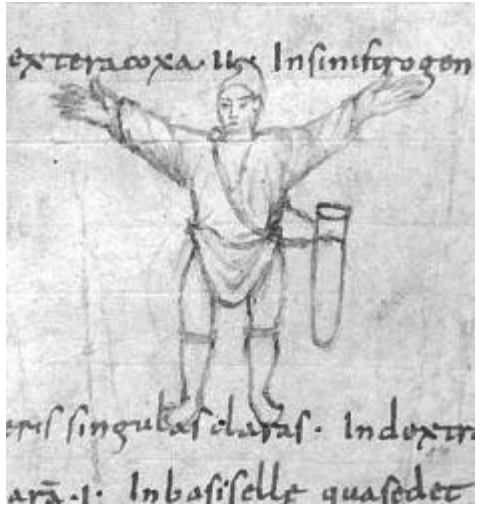 extera coxa · II · In sinistro gen
eris singulas claras · In dextr
arā · I · In basi selle qua sedet